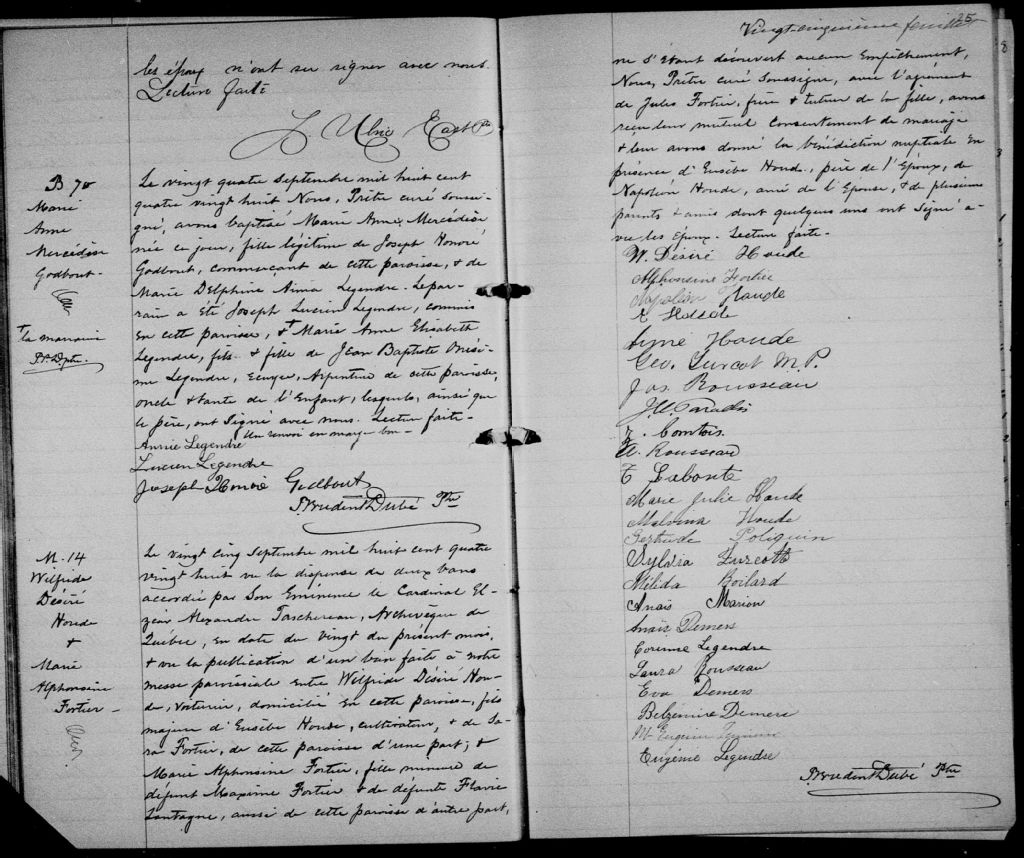 les époux n'ont su signer avec nous.
Lecture faite
L. Ulric Ptre
B 70
Marie
Anne
Mercédèse
Godbout
†la marraine
Le vingt quatre Septembre mil huit cent
quatre vingt huit Nous, Prêtre curé Soussi-
gné, avons baptisé Marie Anne Mercédèse
née ce jour, fille légitime de Joseph Honoré
Godbout, commerçant de cette paroisse, & de
Marie Delphine Aima Legendre. Le par-
rain a été Joseph Lucien Legendre, commis
en cette paroisse, & † Marie Anne Elisabeth
Legendre, fils & fille de Jean Baptiste Onési-
me Legendre, Ecuyer, Arpenteur de cette paroisse,
oncle & tante de l'Enfant, lesquels, ainsi que
le père, ont Signé avec nous. Lecture faite-
Un renvoi en marge bon-
Annie Legendre
Lucien Legendre
Joseph Honoré Godbout
Prudent Dubé Ptre
M. 14
Wilfride
Désiré
Houde
+
Marie
Alphonsine
Fortier-
Le vingt cinq Septembre mil huit cent quatre
vingt huit vu la dispense de deux bans
accordée par Son Eminence le Cardinal El-
zéar Alexandre Taschereau, Archevêque de
Québec, en date du vingt du présent mois,
& vu la publication d'un ban faite à notre
messe paroissiale entre Wilfride Désiré Hou-
de, voiturier, domicilié en cette paroisse, fils
majeur d'Eusèbe Houde, cultivateur, & de Sa-
ra Fortier, de cette paroisse d'une part; &
Marie Alphonsine Fortier, fille mineure de
défunt Maxime Fortier & de défunte Flavie
Lantagne, aussi de cette paroisse d'autre part,
25
Vingt-cinquième feuillet
ne s'étant découvert aucun Empêchement,
Nous, Prêtre curé Soussigné, avec l'agrément
de Jules Fortier, frère & tuteur de la fille, avons
reçu leur mutuel Consentement de mariage
& leur avons donné la bénédiction nuptiale En
présence d'Eusèbe Houde, père de l'Epoux, de
Napoléon Houde, ami de l'Epouse, & de plusieurs
parents & amis dont quelques uns ont Signé a-
vec les Epoux. Lecture faite-
W. Désiré Houde
Alphonsine Fortier
Napoléon Houde
Houde
Geo. Turcot M.P.
Jos. Rousseau
Paradis
Z. Comtois
A. Rousseau
T Labonté
Marie Julie Houde
Malvina Houde
Gertrude Poliquin
Sylvia Turcotte
Mélida Boilard
Anaïs Marion
Anaïs Demers
Corinne Legendre
Laura Rousseau
Eva Demers
Belzémire Demers
M. Eugénie
Eugénie Legendre
Prudent Dubé Ptre